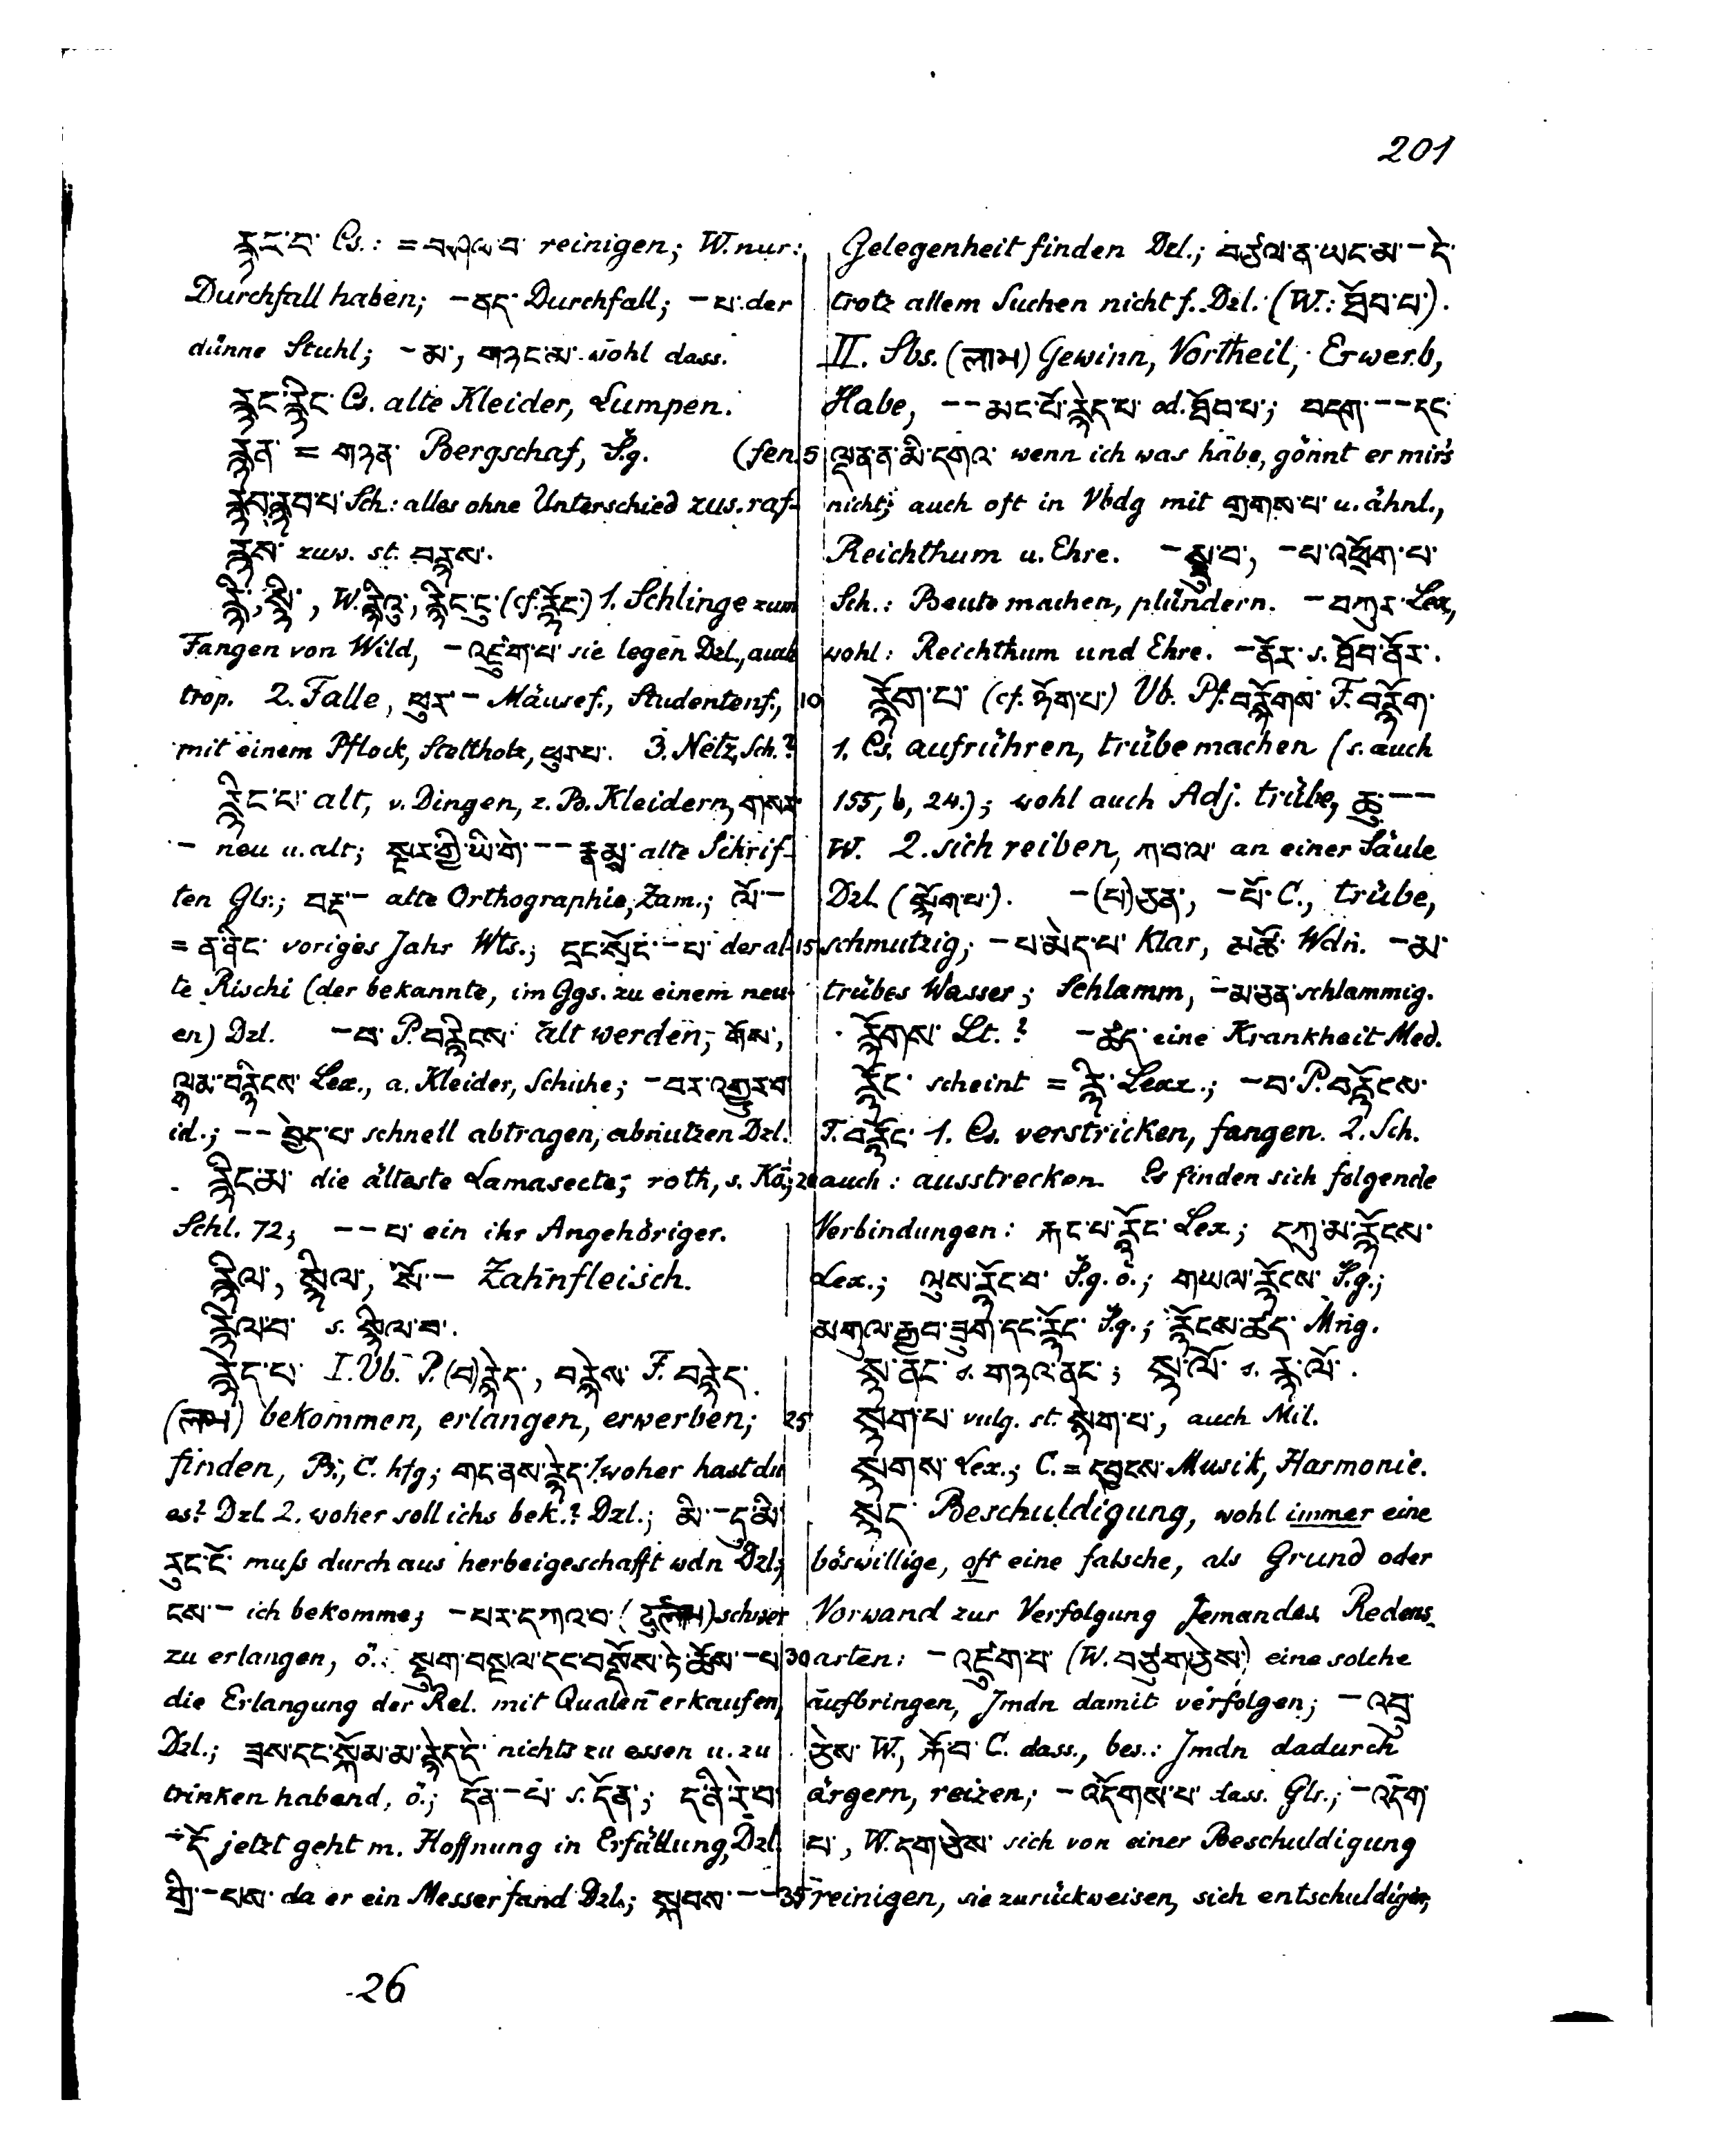 201
རྙང་བ་ Cs.: = བཤལ་བ་ reinigen; W. nur:
Durchfall haben; – ནད་ Durchfall; – པ་ der
dünne Stuhl; – མ་, གཉང་མ་ wohl dass.
རྙང་རྙིང་ Cs. alte Kleider, Lumpen.
རྙན་ = གཉན་ Bergschaf, S̆g. (fen
རྙབ་རྙབ་པ་ Sch.: alles ohne Unterschied zus. raf-
རྙས་ zuw. st. བརྙས་.
རྙི་, སྙི་, W. རྙིའུ་, རྙིང་ངུ་ (cf. རྙོང་) 1. Schlinge zum
Fangen von Wild, – འཛུགས་པ་ sie legen Dzl., auch
trop. 2. Falle, ཕུར་ – Mäusef., Studentenf.,
mit einem Pflock, Stellholz, ཕུརཔ་. 3. Netz, Sch.?
རྙིང་པ་ alt, v. Dingen, z. B. Kleidern, གསར་
– neu u. alt; སྔར་གྱི་ཡི་གེ་ – – རྣམས་ alte Schrif-
ten Glr.; བརྡ་ – alte Orthographie, Zam.; ལོ་ –
= ན་ནིང་ voriges Jahr Wts.; དྲང་སྲོང་ – པ་ der al-
te Rischi (der bekannte, im Ggs. zu einem neu-
en) Dzl. – བ་ P. བརྙིངས་ alt werden; གོས་,
ལྷམ་བརྙིངས་ Lex., a. Kleider, Schuhe; – བར་འགྱུར་བ་
id.; – – བྱེད་པ་ schnell abtragen, abnutzen Dzl.
རྙིང་མ་ die älteste Lamasecte, roth, s. Kö.;
Schl. 72; – – པ་ ein ihr Angehöriger.
རྙིལ་, སྙིལ་, སོ་ – Zahnfleisch.
རྙིལ་བ་ s. སྙིལ་བ་.
རྙེད་པ་ I. Vb. P. (བ)རྙེད་, བརྙེས་ F. བརྙེད་
(लाभ) bekommen, erlangen, erwerben;
finden, B., C. hfg; གང་ནས་རྙེད་ 1. woher hast du
es? Dzl. 2. woher soll ichs bek.? Dzl.; མི་ – དུ་མི་
རུང་ངོ་ muß durchaus herbeigeschafft wdn Dzl.;
ངས་ – ich bekomme; – པར་དཀའ་བ་ (दुर्लभ) schwer
zu erlangen, ö.: སྡུག་བསྔལ་དང་བསྔོས་ཏེ་ཆོས་ – པ་
die Erlangung der Rel. mit Qualen erkaufen,
Dzl.; ཟས་དང་སྐོམ་མ་རྙེད་དེ་ nichts zu essen u. zu
trinken habend, ö.; དོན་ – པ་ s. དོན་; ད་ནི་རེ་བ་
– དོ་ jetzt geht m. Hoffnung in Erfüllung, Dzl.
གྲི་ – པས་ da er ein Messer fand Dzl.; སྐབས་ – –
26
Gelegenheit finden Dzl.; བཙལ་ན་ཡང་མ་ – དེ་
trotz allem Suchen nicht f. Dzl. (W.: ཐོབ་པ་).
II. Sbs. (लाभ) Gewinn, Vortheil, Erwerb,
Habe, – – མང་པོ་རྙེད་པ་ od. ཐོབ་པ་; བདག་ – – དང་
5 ལྡན་ན་མི་དགའ་ wenn ich was habe, gönnt er mir's
nicht; auch oft in Vbdg mit གྲགས་པ་ u. ähnl.,
Reichthum u. Ehre. – སྒྲུ་བ་, – པ་འཕྲོག་པ་
Sch.: Beute machen, plündern. – བཀུར་ Lex.,
wohl: Reichthum und Ehre. – ནོར་ s. ཐོབ་ནོར་.
10 རྙོག་པ་ (cf. ཉོག་པ་) Vb. Pf. བརྙོགས་ F. བརྙོག་
1. Cs. aufrühren, trübe machen (s. auch
155, b, 24.); wohl auch Adj. trübe, ཆུ་ – –
W. 2. sich reiben, ཀ་བ་ལ་ an einer Säule
Dzl. (སྙོག་པ་). – (པ)ཅན་, – པོ་ C., trübe,
15 schmutzig; – པ་མེད་པ་ klar, མཚོ་ Wdn. – མ་
trübes Wasser; Schlamm, – མ་ཅན་ schlammig.
རྙོགས་ Lt.? – ཚད་ eine Krankheit Med.
རྙོང་ scheint = རྙི་ Lexx.; – བ་ P. བརྙོངས་
F. བརྙོང་ 1. Cs. verstricken, fangen. 2. Sch.
20 auch: ausstrecken. Es finden sich folgende
Verbindungen: རྐང་པ་རྙོང་ Lex.; དཀུ་མ་རྙོངས་
Lex.; ལུས་རྙོང་བ་ S̆g. ö.; གཡལ་རྙོངས་ S̆g.;
མགུལ་རྒྱབ་ཟུག་དང་རྙོང་ S̆g.; རྙོངས་ཚད་ Mṅg.
སྙ་ནང་ s. གཉའ་ནང་; སྙ་ལོ་ s. རྙ་ལོ་.
25 སྙག་པ་ vulg. st. སྙེག་པ་, auch Mil.
སྙགས་ Lex.; C. = དབྱངས་ Musik, Harmonie.
སྙད་ Beschuldigung, wohl immer eine
böswillige, oft eine falsche, als Grund oder
Vorwand zur Verfolgung Jemandes. Redens-
30 arten: – འཛུག་པ་ (W. བཙུགཅེས་) eine solche
aufbringen, Jmdn damit verfolgen; – འབྲུ་
ཅེས་ W., རྐོ་བ་ C. dass., bes.: Jmdn dadurch
ärgern, reizen; – འདོགས་པ་ dass. Glr.; – འདག་
པ་, W. དགཅེས་ sich von einer Beschuldigung
35 reinigen, sie zurückweisen, sich entschuldigen,